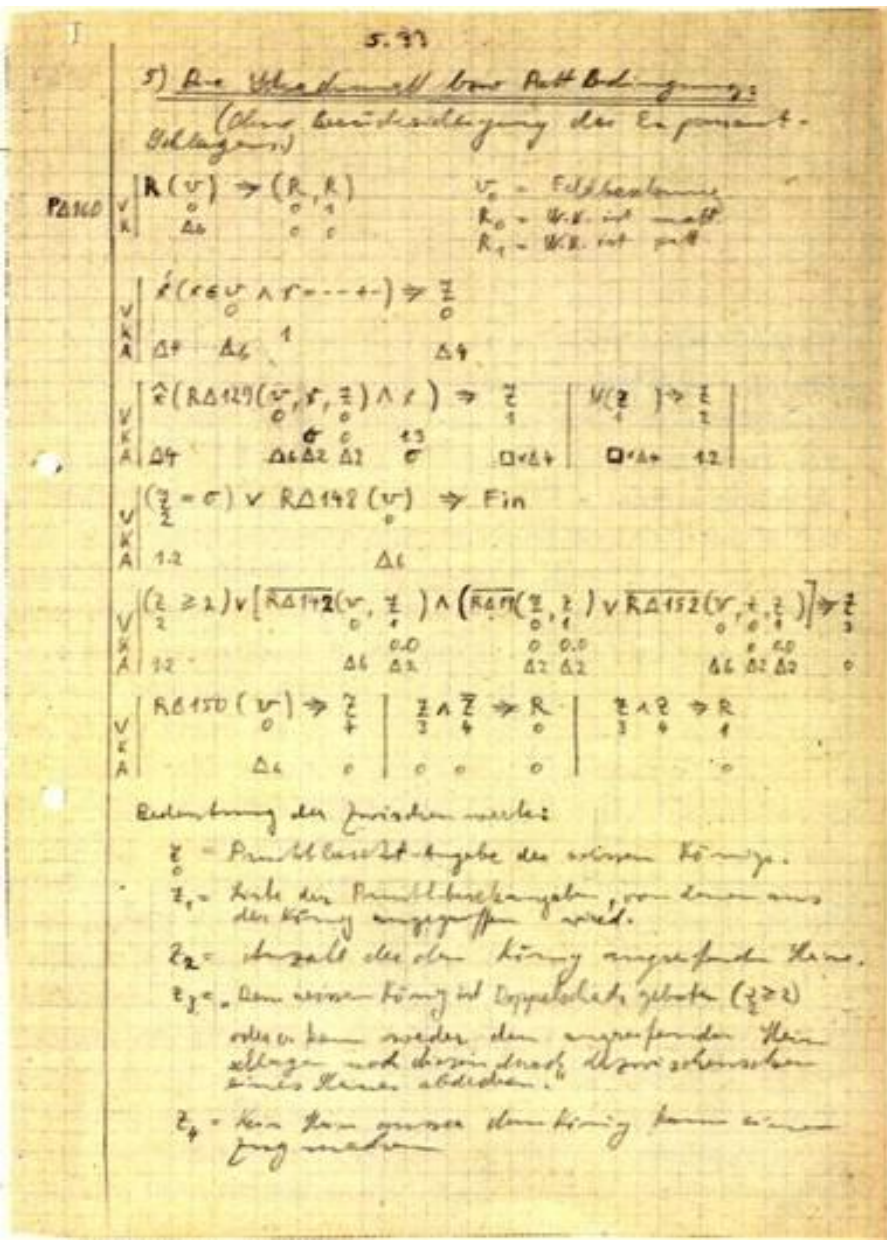 5.99
5) Die Schachmatt bzw Patt Bedingung:
(Ohne Berücksichtigung des En passant-
Schlagens.)
PΔ160 V K R(v) ⇒ (R, R) v₀ = Feldbesetzung
0 0 1 R₀ = W.K. ist matt.
Δ6 0 0 R₁ = W.K. ist patt
V K A x́(x ∈ v ∧ x = - - - + -) ⇒ Z
0 0
1
Δ4 Δ6 Δ4
V K A x̂(RΔ129(v, x, Z) ∧ x) ⇒ Z | N(Z) ⇒ Z
0 0 1 1 2
σ 0 1.3
Δ4 Δ6 Δ2 Δ2 σ □×Δ4 □×Δ4 1.2
V K A (Z = σ) ∨ RΔ148(v) ⇒ Fin
2 0
1.2 Δ6
V K A (Z ≥ 2) ∨ [RΔ142(v, Z) ∧ (RΔ19(Z, Z) ∨ RΔ152(v, Z, Z)] ⇒ Z
2 0 1 0 1 0 0 1 3
0.0 0 0.0 0 0.0
1.2 Δ6 Δ2 Δ2 Δ2 Δ6 Δ2 Δ2 0
V K A RΔ150(v) ⇒ Z | Z ∧ Z̅ ⇒ R | Z ∧ Z ⇒ R
0 4 3 4 0 3 4 1
Δ6 0 0 0 0 0
Bedeutung der Zwischenwerte:
Z₀ = Punktbesetzt-Angabe des weissen Königs.
Z₁ = Liste der Punktbesetztangaben, von denen aus
der König angegriffen wird.
Z₂ = Anzahl der den König angreifenden Steine.
Z₃ = „Dem weissen König ist Doppelschach geboten (Z₂ ≥ 2)
oder er kann weder den angreifenden Stein
schlagen noch diesen durch Dazwischenziehen
eines Steines abdecken."
Z₄ = Kein Stein ausser dem König kann einen
Zug machen